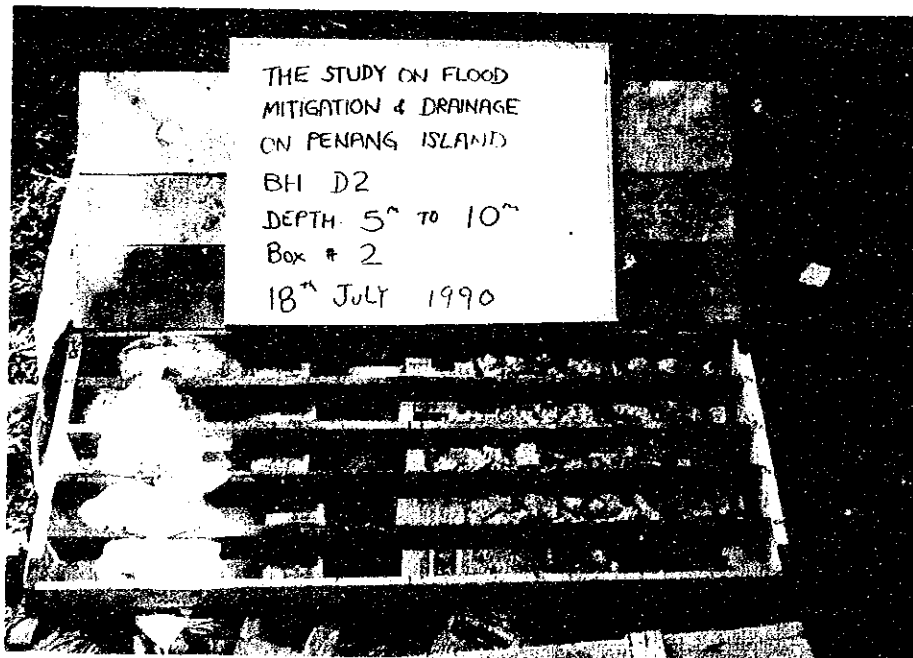 THE STUDY ON FLOOD
MITIGATION & DRAINAGE
ON PENANG ISLAND
BH D2
DEPTH. 5m TO 10m
Box # 2
18th JULY 1990